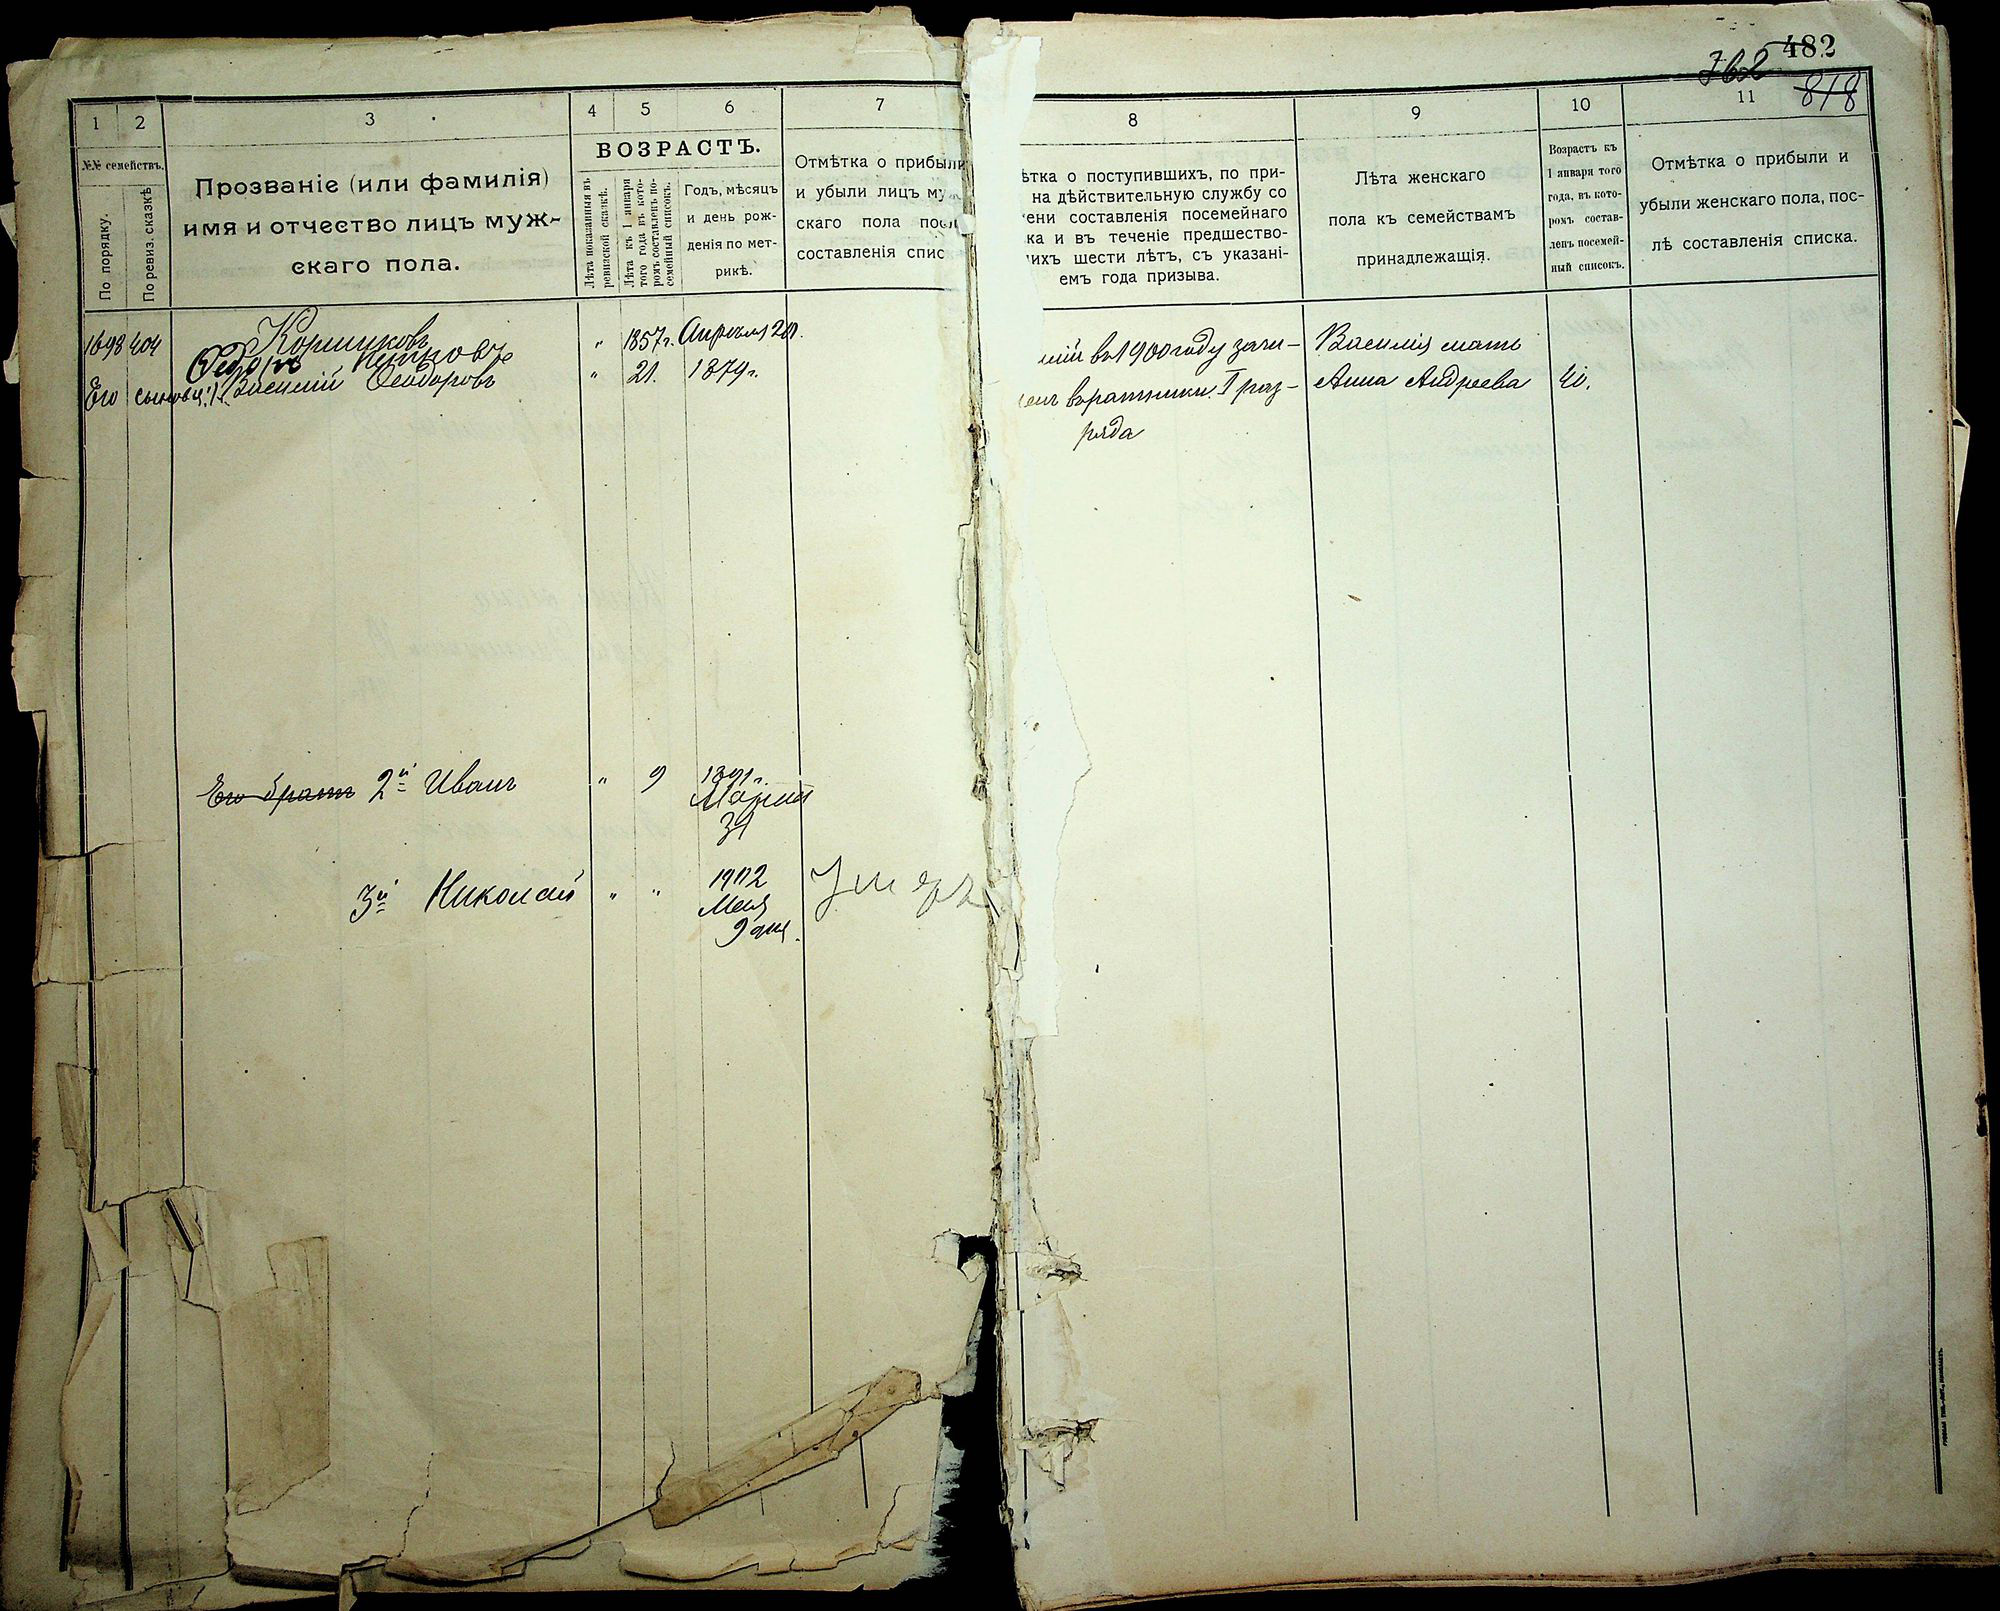 482
762
818
1
2
3
4
5
6
7
8
9
10
11
№№ семействъ.
По порядку.
По ревиз. сказкѣ
Прозваніе (или фамилія)
имя и отчество лицъ муж-
скаго пола.
ВОЗРАСТЪ.
Лѣта показанныя въ
ревизской сказкѣ.
Лѣта къ 1 января
того года въ кото-
ромъ составленъ по-
семейный списокъ.
Годъ, мѣсяцъ
и день рож-
денія по мет-
рикѣ.
Отмѣтка о прибыли
и убыли лицъ му
скаго пола посл
составленія спис
ѣтка о поступившихъ, по при-
на дѣйствительную службу со
ени составленія посемейнаго
ка и въ теченіе предшество-
ихъ шести лѣтъ, съ указані-
емъ года призыва.
Лѣта женскаго
пола къ семействамъ
принадлежащія.
Возрастъ къ
1 января того
года, въ кото-
ромъ состав-
ленъ посемей-
ный списокъ.
Отмѣтка о прибыли и
убыли женскаго пола, пос-
лѣ составленія списка.
1698 404 Коршиковъ " 1857г. Апрѣля 20.
Ѳедоръ
Его сыновья: 1й Василій Ѳедоровъ " 21. 1879г.
лій въ 1900 году зачи-
ленъ въ ратники I раз-
ряда
Василія мать
Анна Андреева 40.
Его братъ 2й Иванъ " 9 1891г.
Марта
31
3й Николай " " 1902
Мая
9 дня.
Умеръ